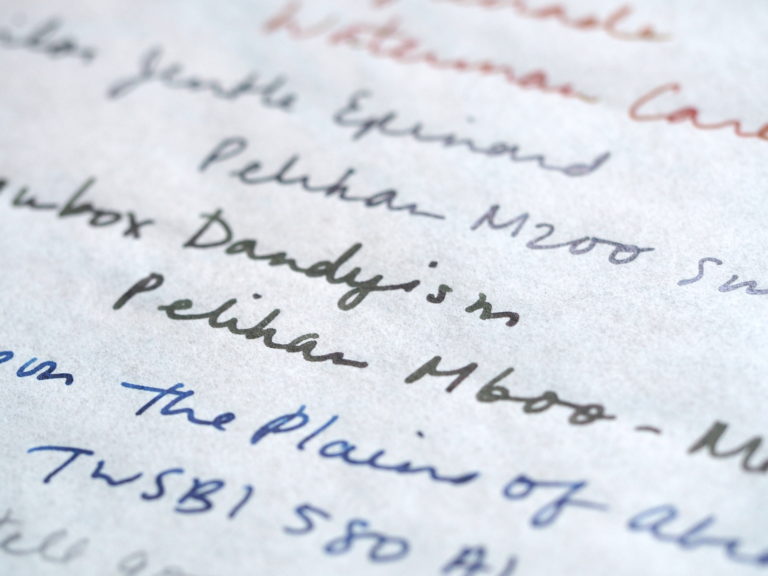 Waterman Care
Gentle Epinard
Pelikan M200 Sm
Inkbox Dandyism
Pelikan M600 - M
on the Plains of Abra
TWSBI 580 Al